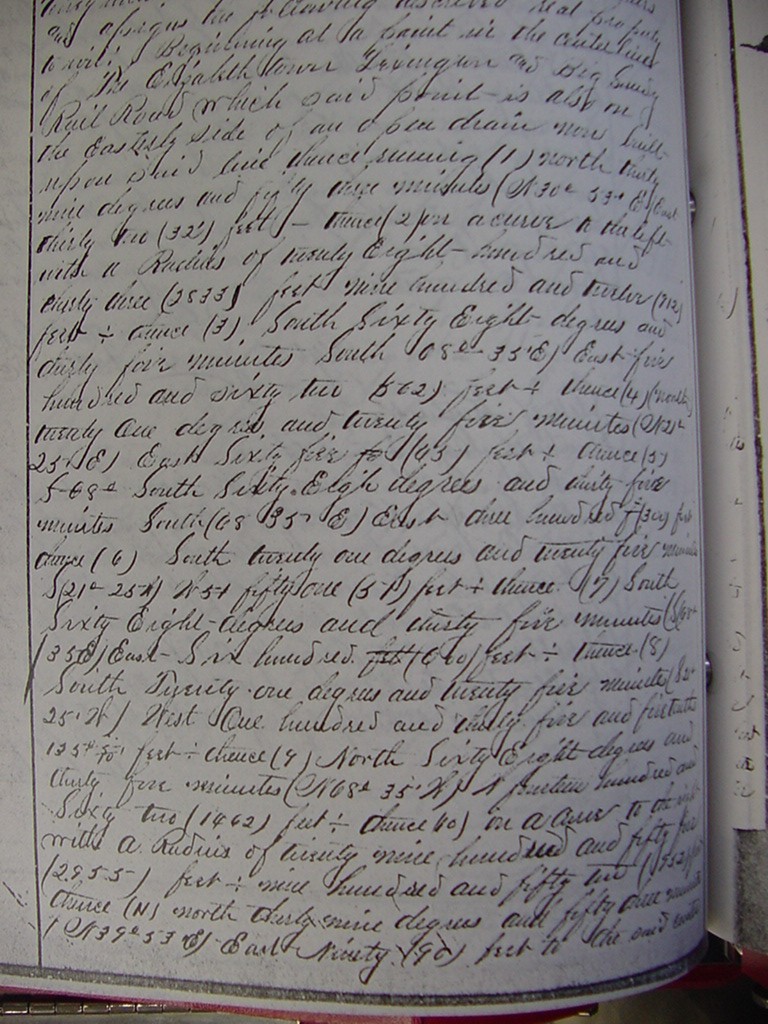 and assigns the following described real property
to wit: Beginning at a point in the center line
of The Elizabethtown Lexington and Big Sandy
Rail Road which said point is also on
the Easterly side of an open drain now built
upon said line thence running (1) north thirty
nine degrees and fifty three minutes (N 30° 53' E) East
thirty two (32') feet - thence (2) on a curve to the left
with a Radius of twenty Eight hundred and
thirty three (2833) feet nine hundred and twelve (912)
feet ÷ thence (3) South Sixty Eight degrees and
thirty five minutes South 68° 35' E) East five
hundred and sixty two (562) feet ÷ thence (4) (north)
twenty One degrees and twenty five minutes (N 21°
25' E) East Sixty five (65) feet ÷ thence (5)
S 68° South Sixty Eigh degrees and thirty five
minutes South (68 35' E) East three hundred (300) feet
thence (6) South twenty one degrees and twenty five minutes
S (21° 25' W) West fifty one (51) feet ÷ thence (7) South
Sixty Eight degrees and thirty five minutes (S 68°
35 E) East Six hundred (600) feet ÷ thence (8)
South Twenty one degrees and twenty five minutes (S 21°
25' W) West One hundred and thirty five and
135 feet ÷ thence (9) North Sixty Eight degrees and
thirty five minutes (N 68° 35' W) fourteen hundred and
Sixty two (1462) feet ÷ thence (10) on a curve to the right
with a Radius of twenty nine hundred and fifty five
(2955) feet ÷ nine hundred and fifty two (952) feet
thence (11) north thirty nine degrees and fifty three minutes
(N 39° 53' E) East Ninety (90) feet to the said center